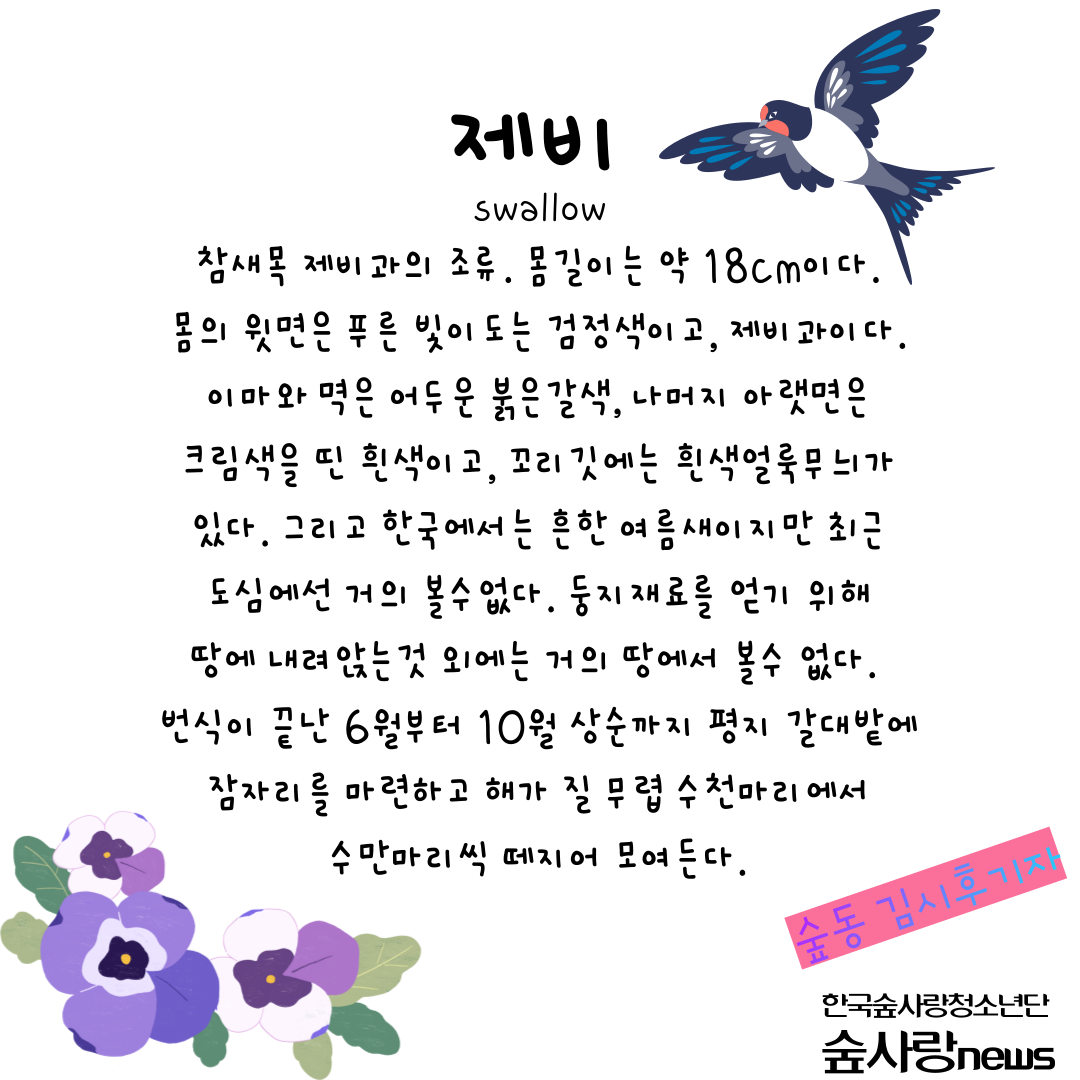 제비
swallow
참새목 제비과의 조류. 몸길이는 약 18cm이다.
몸의 윗면은 푸른 빛이도는 검정색이고, 제비과이다.
이마와 멱은 어두운 붉은갈색, 나머지 아랫면은
크림색을 띤 흰색이고, 꼬리깃에는 흰색얼룩무늬가
있다. 그리고 한국에서는 흔한 여름새이지만 최근
도심에선 거의 볼수없다. 둥지재료를 얻기 위해
땅에 내려앉는것 외에는 거의 땅에서 볼수 없다.
번식이 끝난 6월부터 10월 상순까지 평지 갈대밭에
잠자리를 마련하고 해가 질 무렵 수천마리에서
수만마리씩 떼지어 모여든다.
숲동 김시후기자
한국숲사랑청소년단
숲사랑news